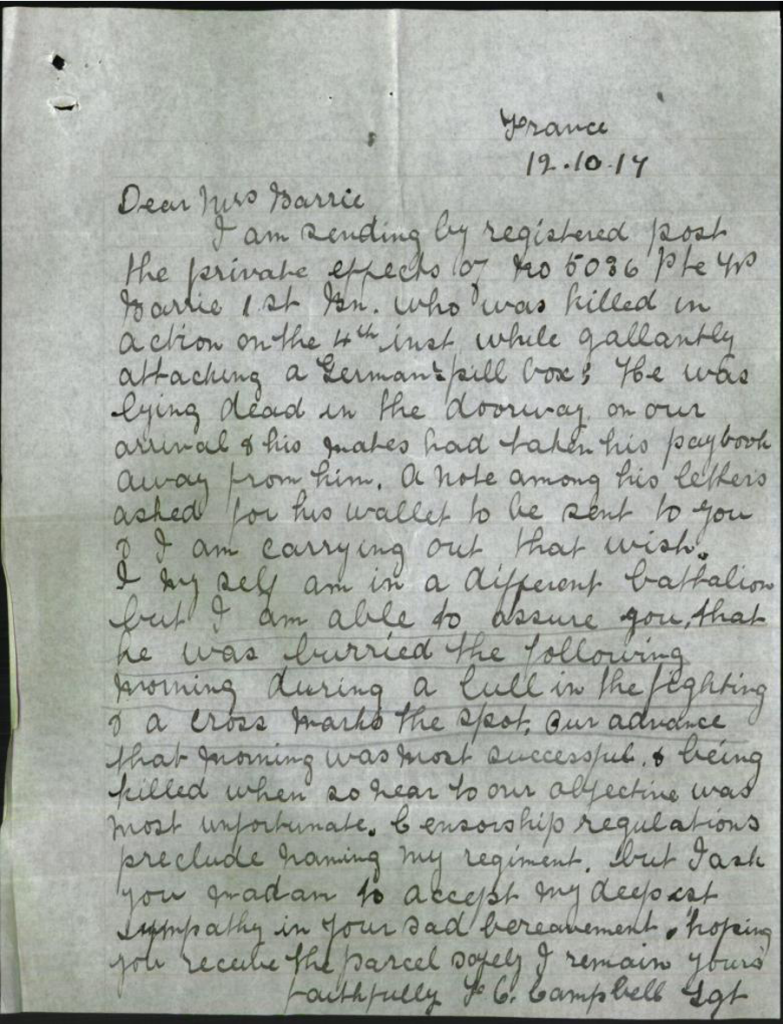 France
12.10.17
Dear Mrs Barrie
I am sending by registered post
the private effects of No 5036 Pte
Barrie 1st Bn. who was killed in
action on the 4th inst while gallantly
attacking a German pill box; He was
lying dead in the doorway on our
arrival & his mates had taken his paybook
away from him. A note among his letters
asked for his wallet to be sent to you
& I am carrying out that wish.
I my self am in a different battalion
but I am able to assure you, that
he was burried the following
morning during a lull in the fighting
& a cross marks the spot. Our advance
that morning was most successful. & being
killed when so near to our objective was
most unfortunate. Censorship regulations
preclude naming my regiment. but I ask
you madam to accept my deepest
sympathy in your sad bereavement. hoping
you receive the parcel safely I remain yours
faithfully C. Campbell Sgt